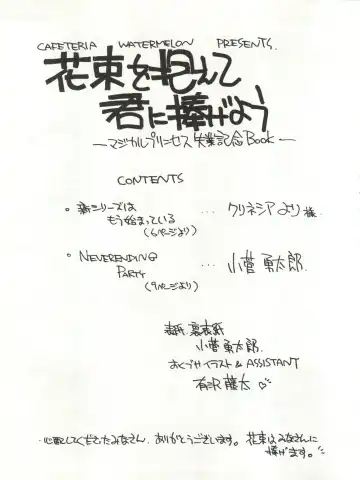 CAFETERIA WATERMELON PRESENTS.
花束を抱えて
君に捧げよう
―マジカルプリンセス失業記念Book―
CONTENTS
。新シリーズは
もう始まっている
(6ページより)
… クリネシアより様
。NEVERENDING
PARTY
(9ページより)
… 小菅勇太郎.
表紙.裏表紙
小菅勇太郎.
おくづけイラスト&ASSISTANT
有沢藤太
心配してくださったみなさん.ありがとうございます。花束はみなさんに
捧げます。